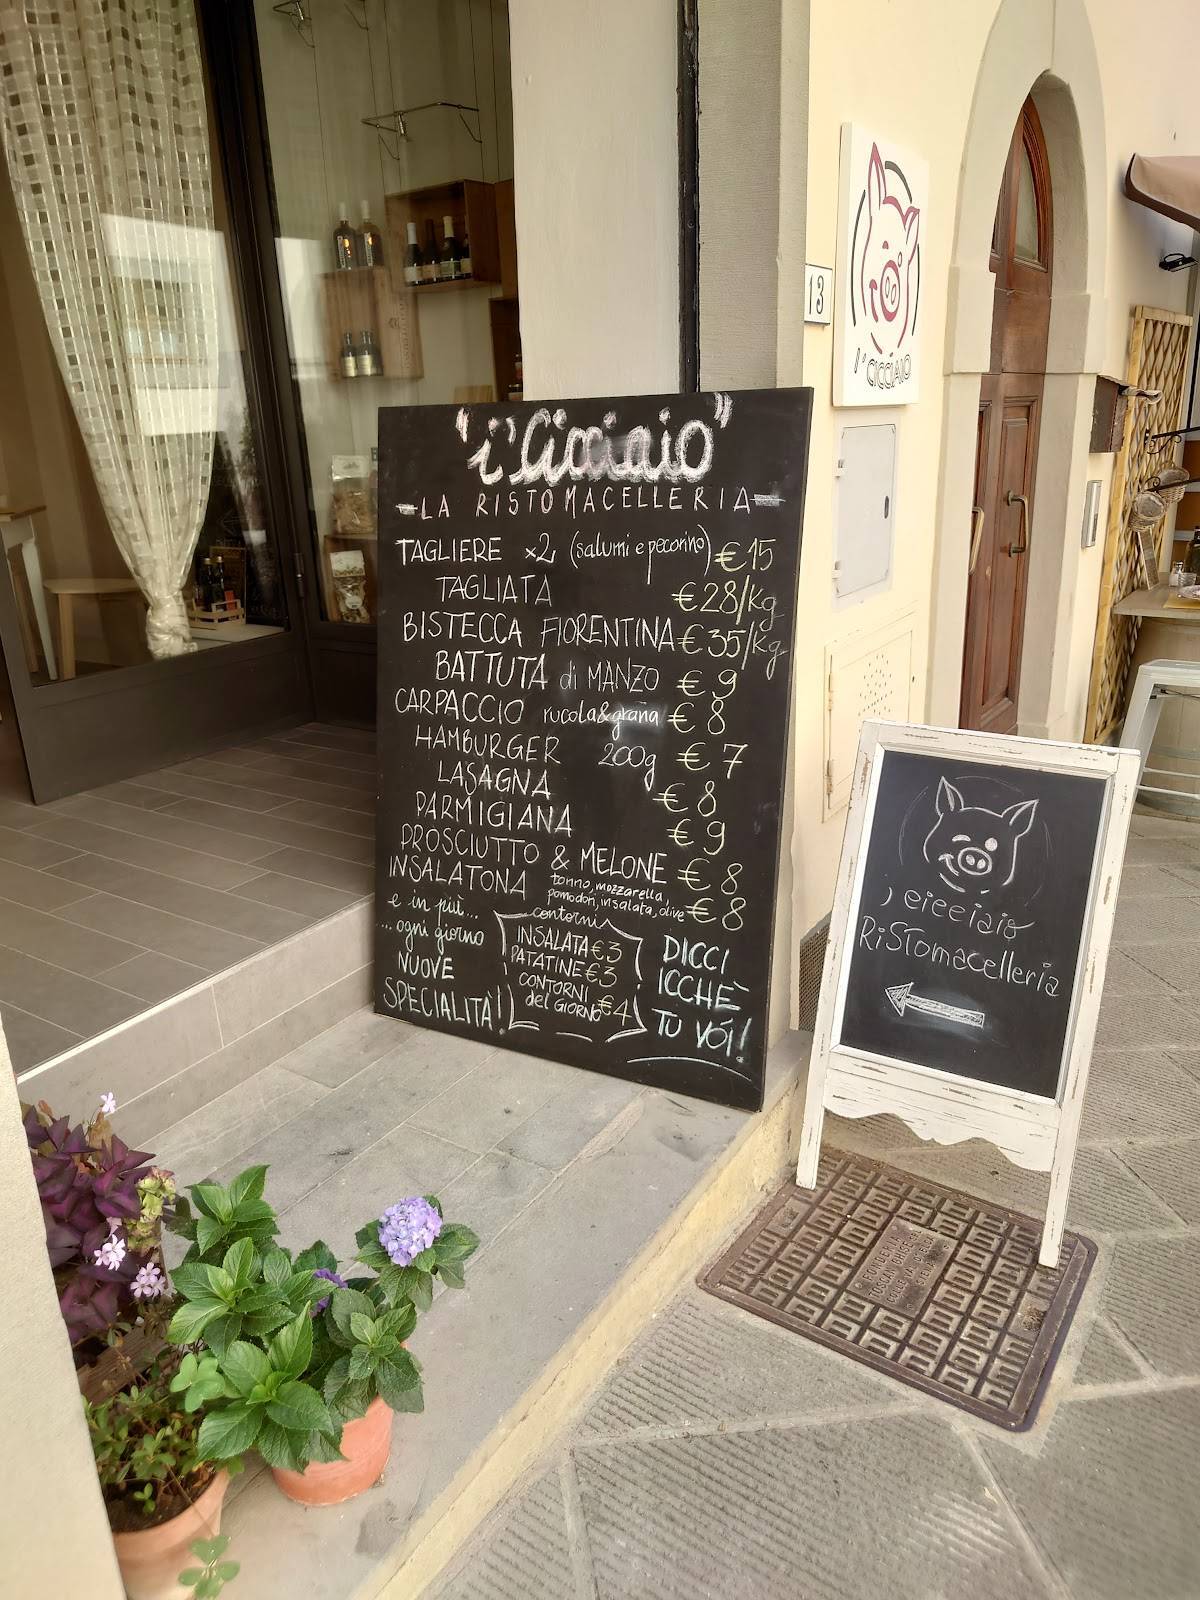 "i'Cicciaio"
LA RISTOMACELLERIA
TAGLIERE x2 (salumi e pecorino) €15
TAGLIATA €28/Kg
BISTECCA FIORENTINA €35/Kg
BATTUTA di MANZO € 9
CARPACCIO rucola&grana € 8
HAMBURGER 200g € 7
LASAGNA € 8
PARMIGIANA € 9
PROSCIUTTO & MELONE € 8
INSALATONA tonno, mozzarella, pomodori, insalata, olive € 8
e in più...
...ogni giorno
NUOVE
SPECIALITÀ!
contorni
INSALATA €3
PATATINE €3
CONTORNI
del GIORNO €4
DICCI
ICCHÈ
TU VÓI!
13
i'CICCIAIO
i'cicciaio
RiSTomacelleria